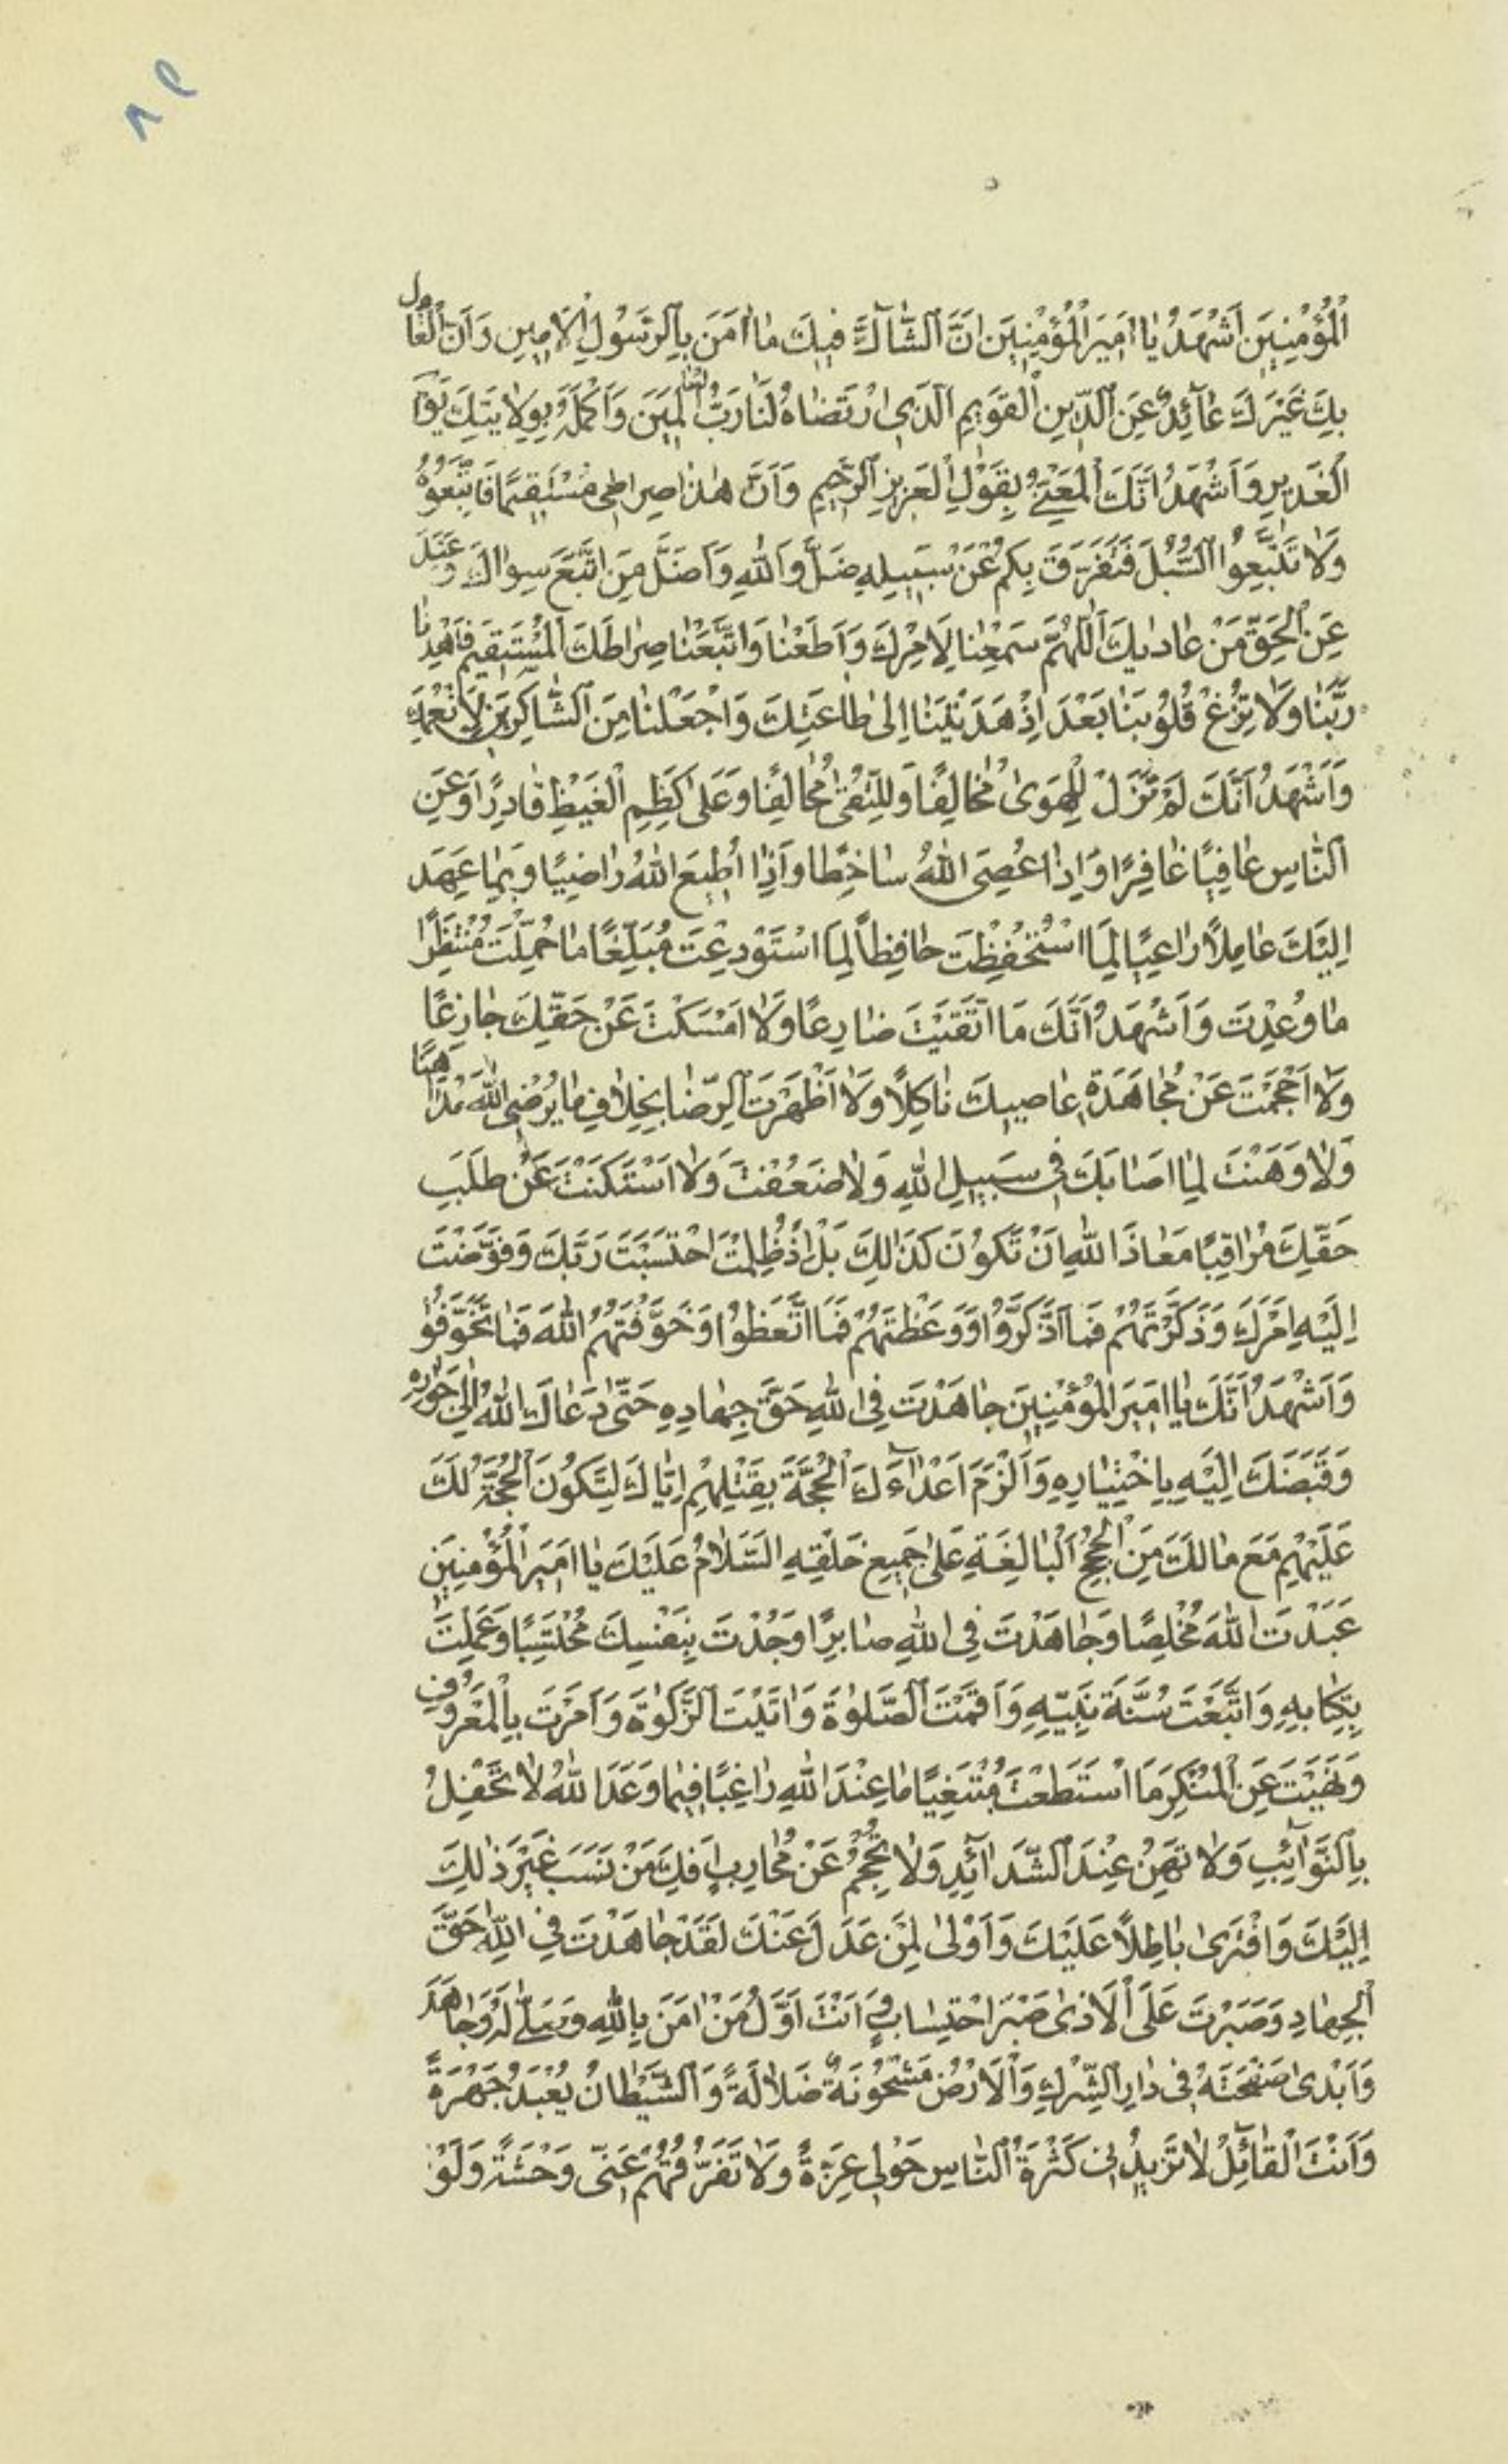 ٨٩
الْمُؤْمِنِينَ اَشْهَدُ يٰا اَمِيرَ الْمُؤْمِنِينَ اَنَّ الشّٰاكَّ فيكَ مٰا اٰمَنَ بِالرَّسُولِ الْاَمِينِ وَاَنَّ الْعٰادِلَ
بِكَ غَيْرَكَ عٰآئِدٌ عَنِ الدِّينِ الْقَوِيمِ الَّذِي ارْتَضٰاهُ لَنٰا رَبُّ الْعٰالَمِينَ وَاَكْمَلَهُ بِوِلٰايَتِكَ يَوْمَ
الْغَدِيرِ وَاَشْهَدُ اَنَّكَ الْمَعْنِيُّ بِقَوْلِ الْعَزِيزِ الرَّحِيمِ وَاَنَّ هٰذٰا صِرٰاطِى مُسْتَقِيمًا فَاتَّبِعُوهُ
وَلٰا تَتَّبِعُوا السُّبُلَ فَتَفَرَّقَ بِكُمْ عَنْ سَبِيلِهِ ضَلَّ وَاللّٰهِ وَاَضَلَّ مَنِ اتَّبَعَ سِوٰاكَ وَعَنَدَ
عَنِ الْحَقِّ مَنْ عٰادٰاكَ اَللّٰهُمَّ سَمِعْنٰا لِاَمْرِكَ وَاَطَعْنٰا وَاتَّبَعْنٰا صِرٰاطَكَ الْمُسْتَقِيمَ فَاهْدِنٰا
رَبَّنٰا وَلٰا تُزِغْ قُلُوبَنٰا بَعْدَ اِذْ هَدَيْتَنٰا اِلىٰ طٰاعَتِكَ وَاجْعَلْنٰا مِنَ الشّٰاكِرِينَ لِاَنْعُمِكَ
وَاَشْهَدُ اَنَّكَ لَمْ تَزَلْ لِلْهَوىٰ مُخٰالِفًا وَلِلتُّقىٰ مُحٰالِفًا وَعَلىٰ كَظْمِ الْغَيْظِ قٰادِرًا وَعَنِ
النّٰاسِ عٰافِيًا غٰافِرًا وَاِذٰا عُصِىَ اللّٰهُ سٰاخِطًا وَاِذٰا اُطِيعَ اللّٰهُ رٰاضِيًا وَبِمٰا عَهِدَ
اِلَيْكَ عٰامِلًا رٰاعِيًا لِمَا اسْتُحْفِظْتَ حٰافِظًا لِمَا اسْتُوْدِعْتَ مُبَلِّغًا مٰا حُمِّلْتَ مُنْتَظِرًا
مٰا وُعِدْتَ وَاَشْهَدُ اَنَّكَ مَا اتَّقَيْتَ ضٰارِعًا وَلٰا اَمْسَكْتَ عَنْ حَقِّكَ جٰازِعًا
وَلٰا اَحْجَمْتَ عَنْ مُجٰاهَدَةِ عٰاصِيكَ نٰاكِلًا وَلٰا اَظْهَرْتَ الرِّضٰا بِخِلٰافِ مٰا يُرْضِى اللّٰهَ مُدٰاهِنًا
وَلٰا وَهَنْتَ لِمٰا اَصٰابَكَ فِى سَبِيلِ اللّٰهِ وَلٰا ضَعُفْتَ وَلَا اسْتَكَنْتَ عَنْ طَلَبِ
حَقِّكَ مُرٰاقِبًا مَعٰاذَ اللّٰهِ اَنْ تَكُونَ كَذٰلِكَ بَلْ اِذْ ظُلِمْتَ احْتَسَبْتَ رَبَّكَ وَفَوَّضْتَ
اِلَيْهِ اَمْرَكَ وَذَكَّرْتَهُمْ فَمَا ادَّكَرُوا وَوَعَظْتَهُمْ فَمَا اتَّعَظُوا وَخَوَّفْتَهُمُ اللّٰهَ فَمٰا تَخَوَّفُوا
وَاَشْهَدُ اَنَّكَ يٰا اَمِيرَ الْمُؤْمِنِينَ جٰاهَدْتَ فِى اللّٰهِ حَقَّ جِهٰادِهِ حَتّىٰ دَعٰاكَ اللّٰهُ اِلىٰ جِوٰارِهِ
وَقَبَضَكَ اِلَيْهِ بِاخْتِيٰارِهِ وَاَلْزَمَ اَعْدٰآءَكَ الْحُجَّةَ بِقَتْلِهِمْ اِيّٰاكَ لِتَكُونَ الْحُجَّةُ لَكَ
عَلَيْهِمْ مَعَ مٰا لَكَ مِنَ الْحُجَجِ الْبٰالِغَةِ عَلىٰ جَمِيعِ خَلْقِهِ اَلسَّلٰامُ عَلَيْكَ يٰا اَمِيرَ الْمُؤْمِنِينَ
عَبَدْتَ اللّٰهَ مُخْلِصًا وَجٰاهَدْتَ فِى اللّٰهِ صٰابِرًا وَجُدْتَ بِنَفْسِكَ مُحْتَسِبًا وَعَمِلْتَ
بِكِتٰابِهِ وَاتَّبَعْتَ سُنَّةَ نَبِيِّهِ وَاَقَمْتَ الصَّلٰوةَ وَاٰتَيْتَ الزَّكٰوةَ وَاَمَرْتَ بِالْمَعْرُوفِ
وَنَهَيْتَ عَنِ الْمُنْكَرِ مَا اسْتَطَعْتَ مُبْتَغِيًا مٰا عِنْدَ اللّٰهِ رٰاغِبًا فِيمٰا وَعَدَ اللّٰهُ لٰا تَحْفِلُ
بِالنَّوٰآئِبِ وَلٰا تَهِنُ عِنْدَ الشَّدٰآئِدِ وَلٰا تَحْجُمُ عَنْ مُحٰارِبٍ اَفِكَ مَنْ نَسَبَ غَيْرَ ذٰلِكَ
اِلَيْكَ وَافْتَرىٰ بٰاطِلًا عَلَيْكَ وَاَوْلىٰ لِمَنْ عَدَلَ عَنْكَ لَقَدْ جٰاهَدْتَ فِى اللّٰهِ حَقَّ
الْجِهٰادِ وَصَبَرْتَ عَلَى الْاَذىٰ صَبْرَ احْتِسٰابٍ وَ اَنْتَ اَوَّلُ مَنْ اٰمَنَ بِاللّٰهِ وَصَلّىٰ لَهُ وَجٰاهَدَ
وَاَبْدىٰ صَفْحَتَهُ فِى دٰارِ الشِّرْكِ وَالْاَرْضُ مَشْحُونَةٌ ضَلٰالَةً وَالشَّيْطٰانُ يُعْبَدُ جَهْرَةً
وَاَنْتَ الْقٰآئِلُ لٰا تَزِيدُنِى كَثْرَةُ النّٰاسِ حَوْلِى عِزَّةً وَلٰا تَفَرُّقُهُمْ عَنِّى وَحْشَةً وَلَوْ